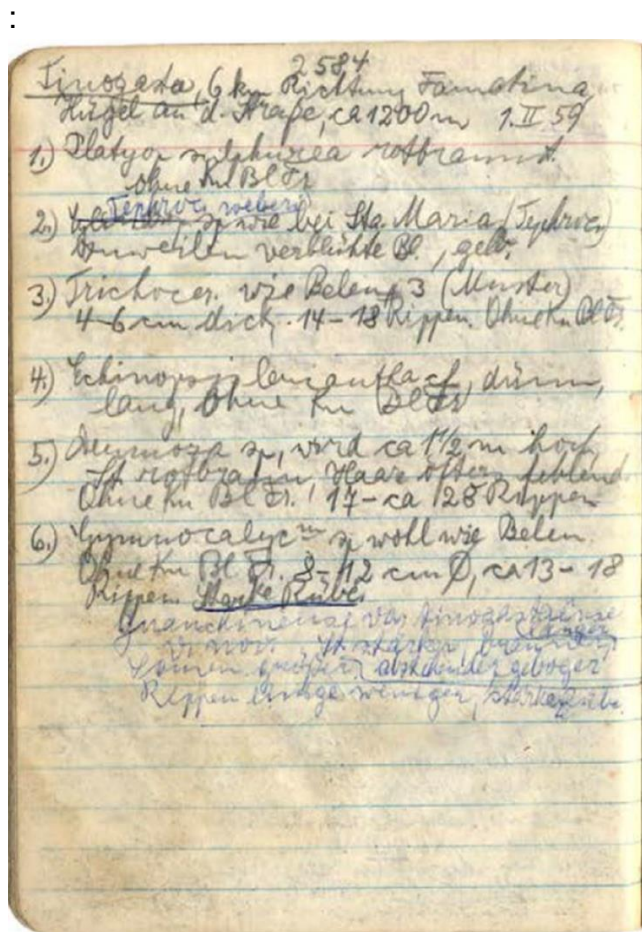 :
2584
Tinogasta, 6 km Richtung Famatina
Hügel an d. Straße, ca 1200 m 1.II 59
1.) Platyop. sulphurea rotbraun St.
ohne Kn Bl Fr
Tephroc. weberi
2.) sp wie bei Sta. Maria (Tephroc.)
bisweilen verblühte Bl, gelb.
3.) Trichocer. wie Belen 3 (Muster)
4-6 cm dick, 14-18 Rippen. Ohne Kn Bl Fr.
4.) Echinopsis leucantha cf, dünn,
lang, Ohne Kn Bl Fr
5.) Denmoza sp, wird ca 1 1/2 m hoch,
St rotbraun, Haare öfters fehlend
Ohne Kn Bl Fr. 17- ca 28 Rippen
6.) Gymnocalyc m sp wohl wie Belen.
Ohne Kn Bl Fr. 8-12 cm Ø, ca 13-18
Rippen. Starke Rübe.
var. tinogastense
v. nov. St stärker,
abstehender gebogen
Rippen einige weniger, starke Rübe.